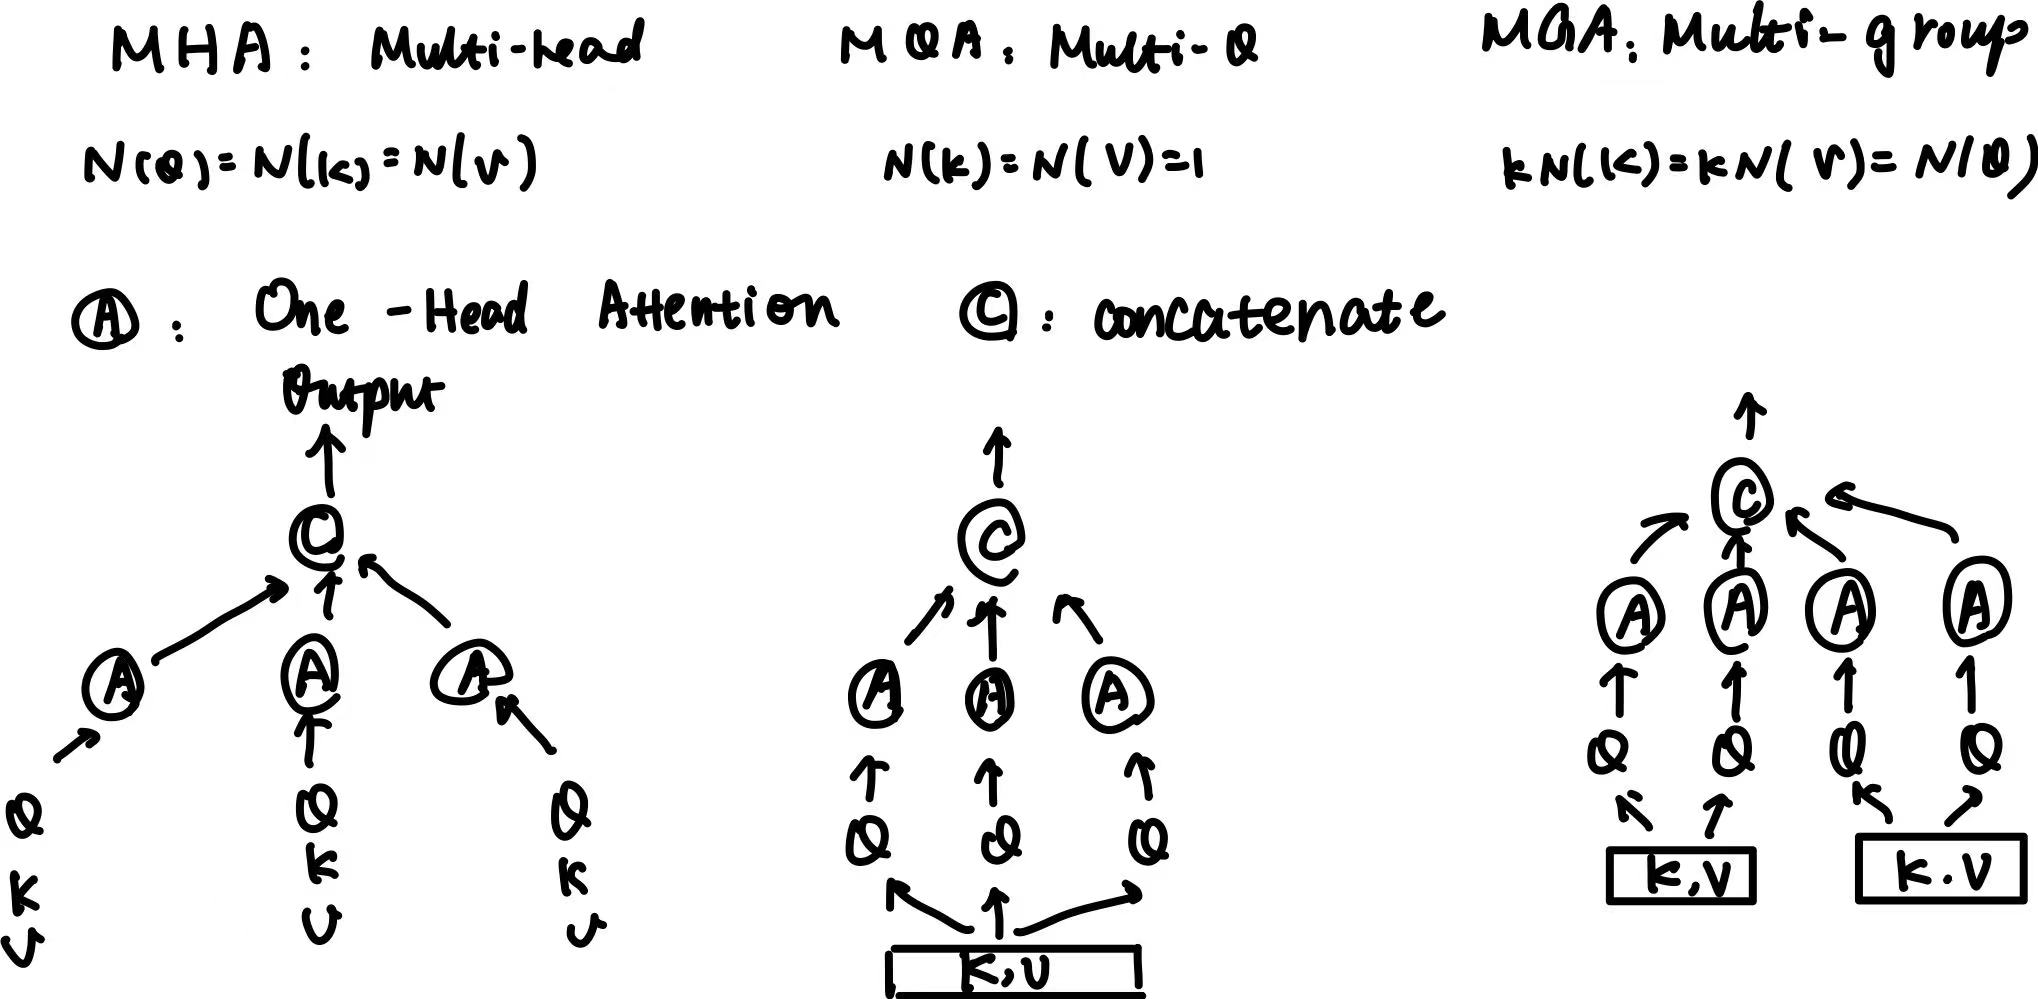 MHA: Multi-head
MQA: Multi-Q
MGA: Multi-group
N(Q)=N(K)=N(V)
N(K)=N(V)=1
kN(K)=kN(V)=N(Q)
Ⓐ: One-Head Attention
Ⓒ: concatenate
Output
C
C
C
A A A
A A A
A A A A
Q Q Q
K K K
V V V
Q Q Q
K,V
Q Q Q Q
K,V
K.V